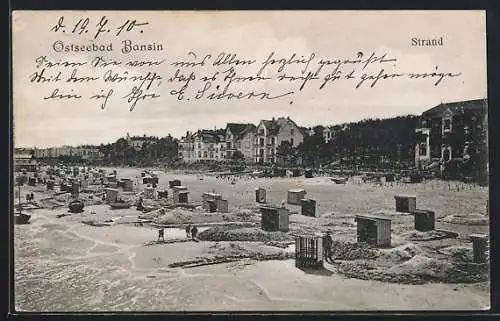 d. 19. 7. 10.
Ostseebad Bansin
Strand
Seien Sie von uns Allen herzlich gegrüsst
Mit dem Wünsche, dass es Ihnen recht gut gehen möge
bin ich Ihre E. Sievern